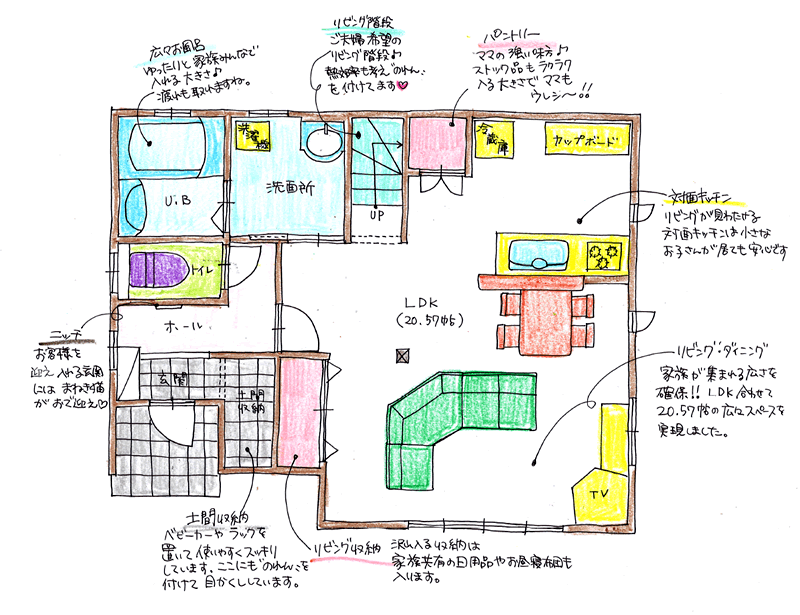 広々お風呂
ゆったりと家族みんなで
入れる大きさ♪
疲れも取れますね。
リビング階段
ご夫婦希望の
リビング階段♪
熱効率も考え“のれん„
を付けてます♥
パントリー
ママの強い味方♪
ストック品もラクラク
入る大きさでママも
ウレシ〜!!
洗濯機
洗面所
U.B
UP
冷蔵庫
カップボード
対面キッチン
リビングが見わたせる
対面キッチンは小さな
お子さんが居ても安心です
トイレ
ホール
LDK
(20.57帖)
ニッチ
お客様を
迎え入れる玄関
には まねき猫
がお出迎え♡
玄関
土間
収納
リビング・ダイニング
家族が集まれる広さを
確保!! LDK合わせて
20.57帖の広々スペースを
実現しました。
TV
土間収納
ベビーカーや ラックを
置いて使いやすくスッキリ
しています。ここにも“のれん„を
付けて目かくししています。
リビング収納
沢山入る収納は
家族共有の日用品やお昼寝布団も
入ります。